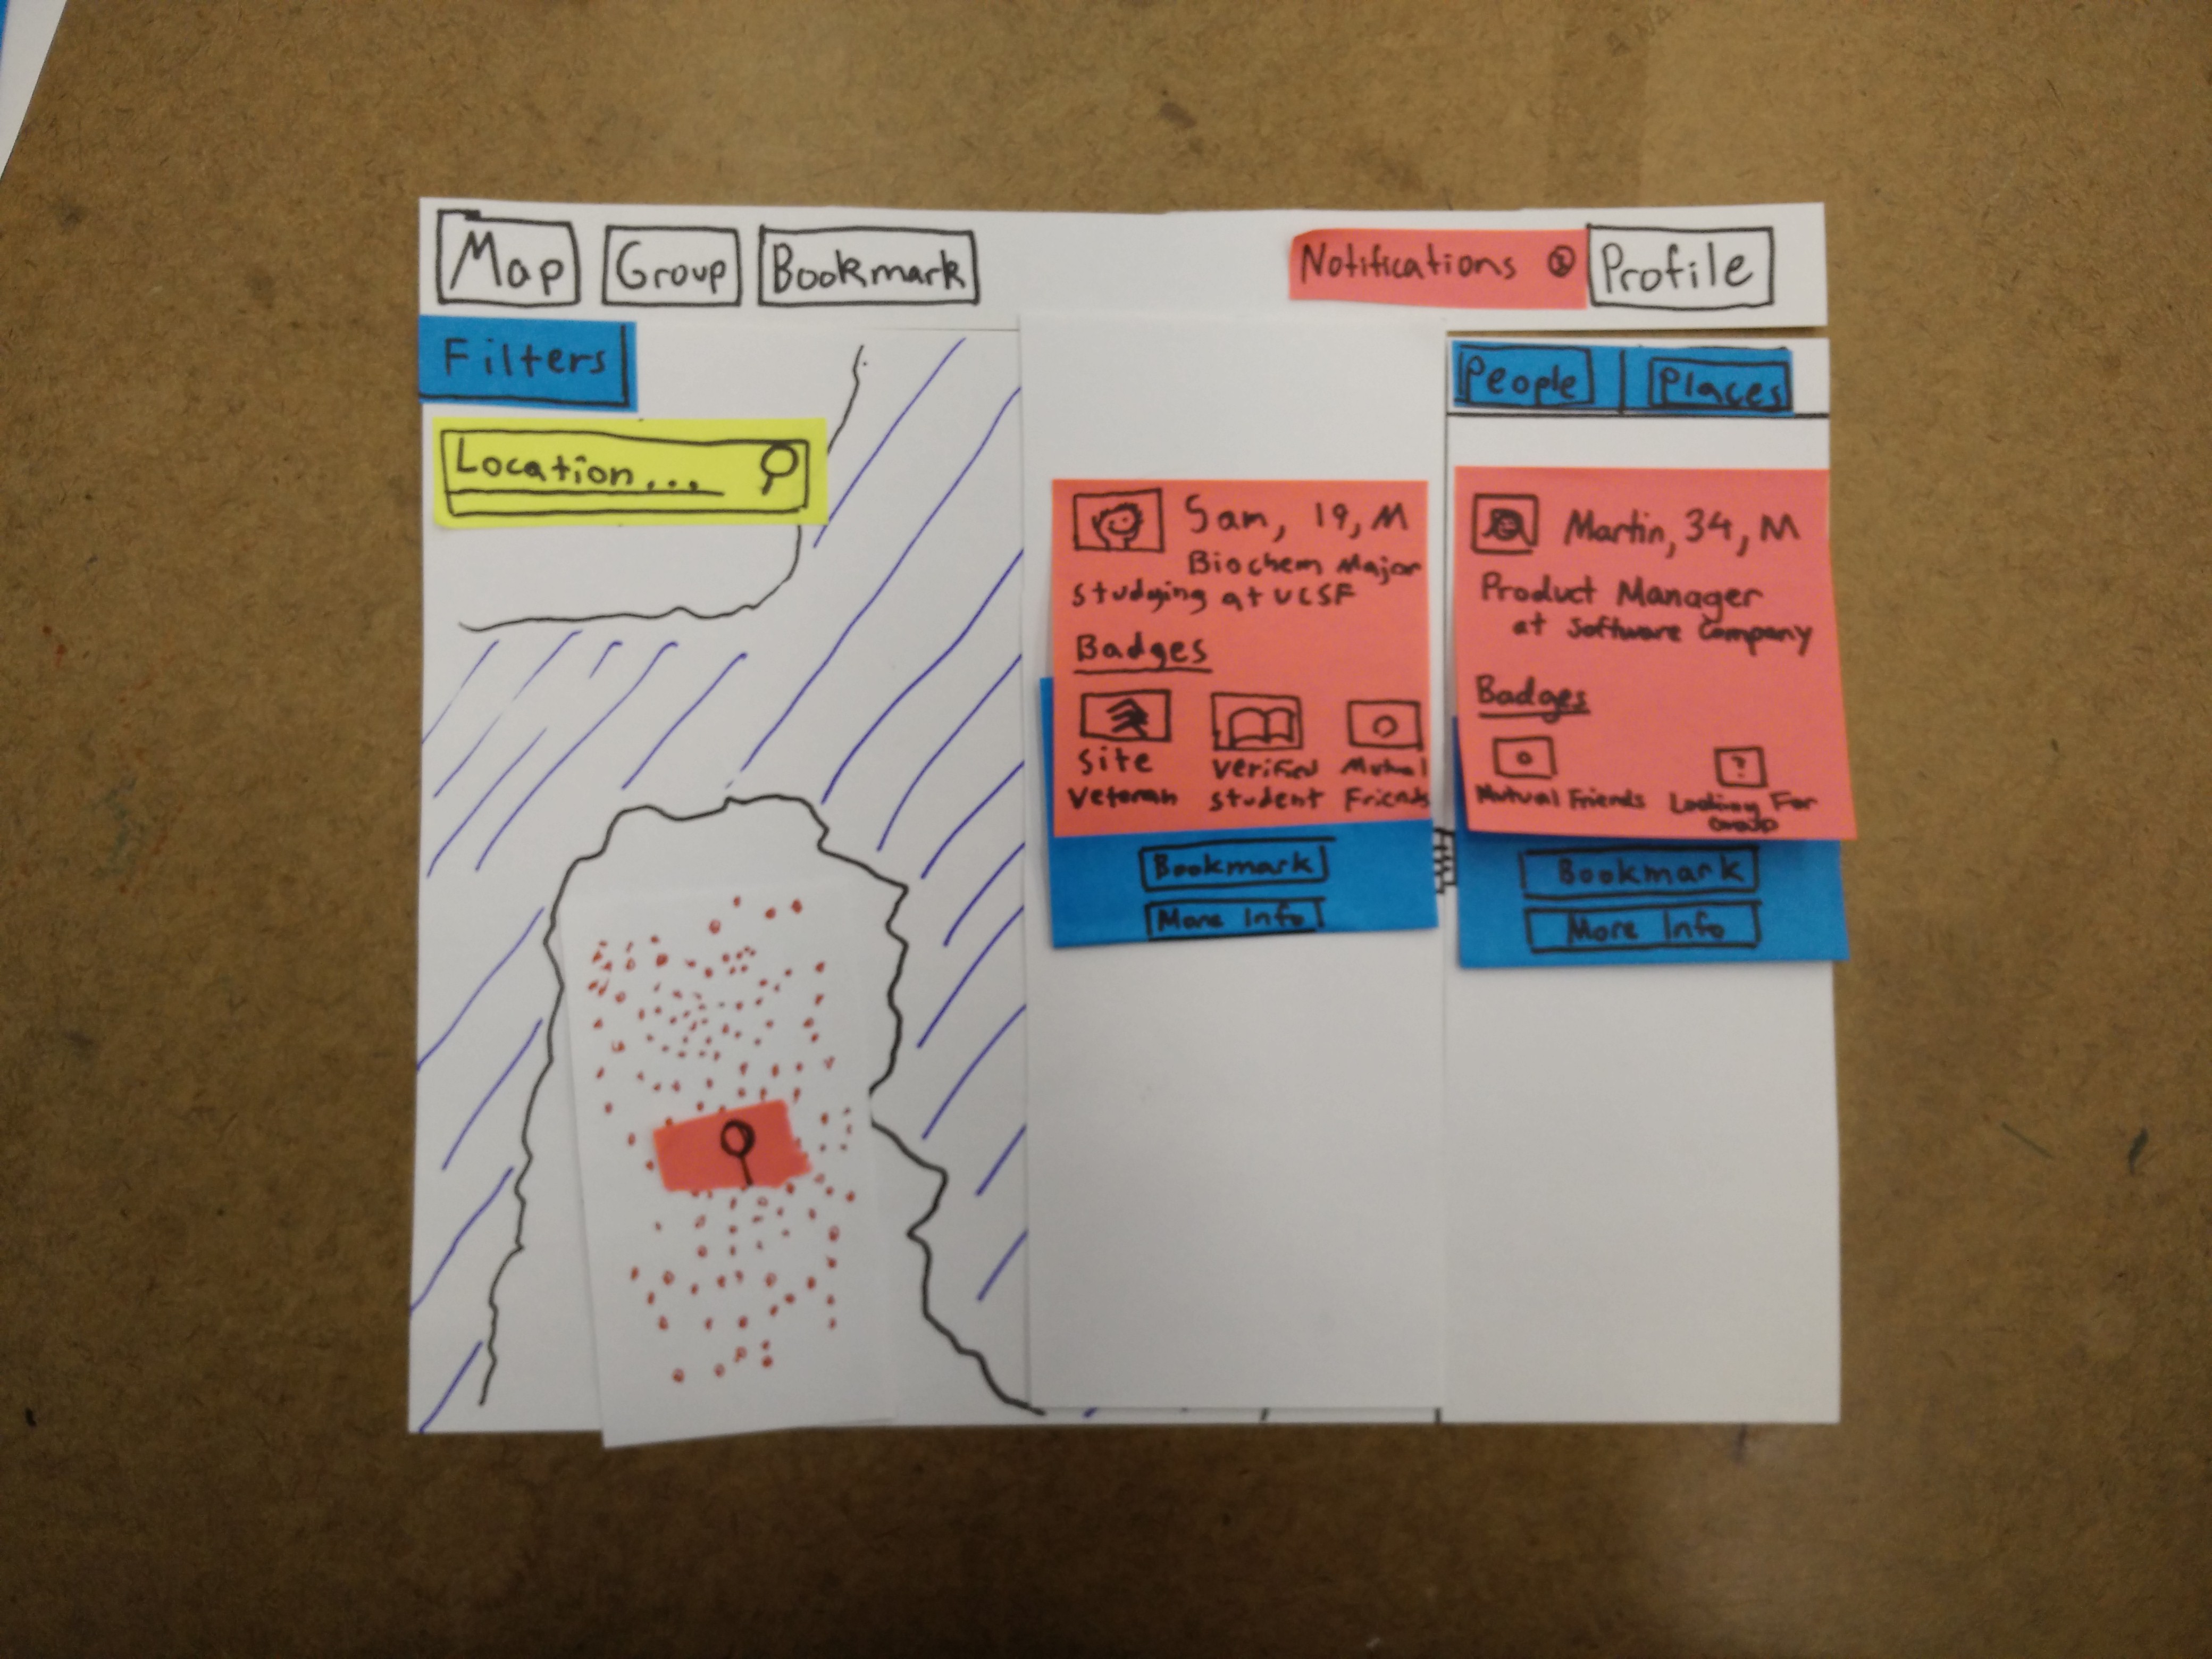 Map
Group
Bookmark
Notifications
Profile
Filters
Location...
People
Places
Sam, 19, M
Biochem Major
studying at UCSF
Badges
site
veteran
verified
student
Mutual
Friends
Bookmark
More Info
Martin, 34, M
Product Manager
at Software Company
Badges
Mutual Friends
?
Looking For
Group
Bookmark
More Info